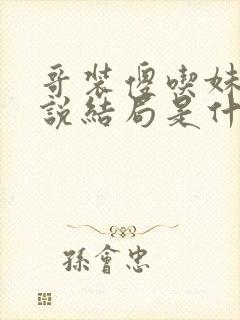 哥装傻喫妹
說結局是什
孫會忠